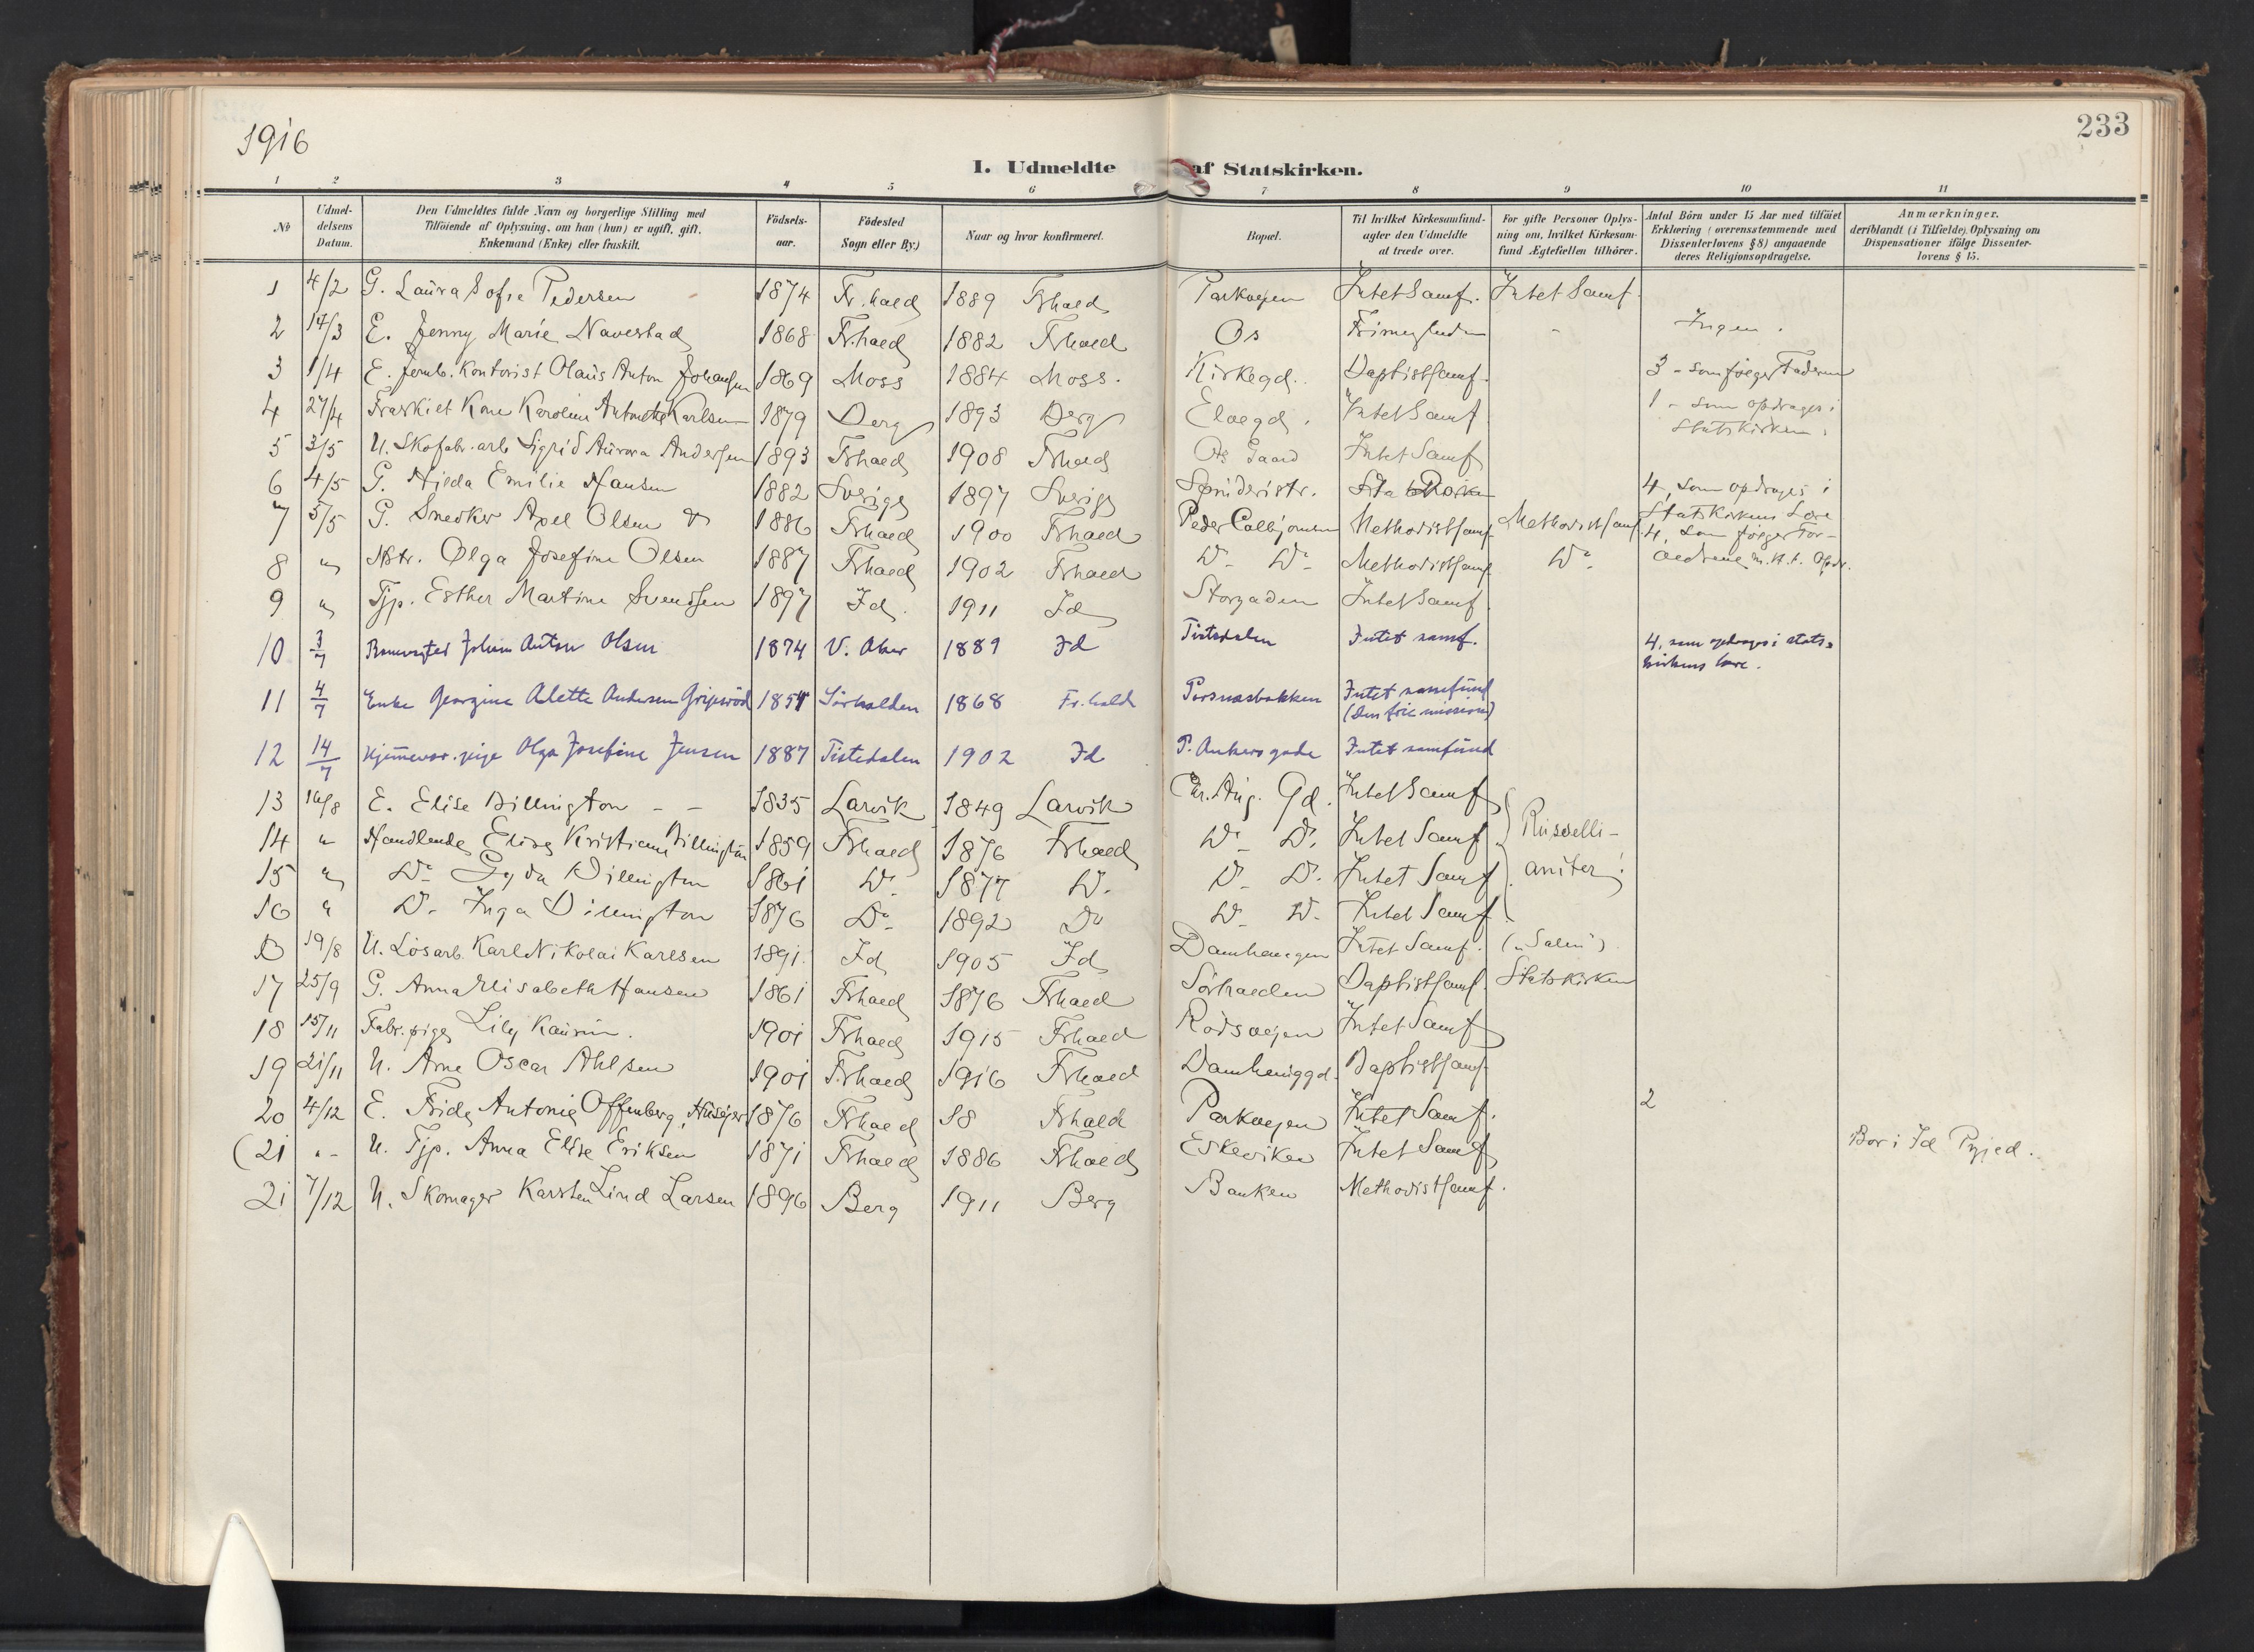 1916
233
I. Udmeldte af Statskirken.
1 2 3 4 5 6 7 8 9 10 11
No
Udmeldelsens Datum.
Den Udmeldtes fulde Navn og borgerlige Stilling med Tilføiende af Oplysning, om han (hun) er ugift, gift, Enkemand (Enke) eller fraskilt.
Födselsaar.
Födested Sogn eller By.)
Naar og hvor konfirmeret.
Bopæl.
Til hvilket Kirkesamfund agter den Udmeldte at træde over.
For gifte Personer Oplysning om, hvilket Kirkesamfund Ægtefællen tilhörer.
Antal Börn under 15 Aar med tilföiet Erklæring (overensstemmende med Dissenterlovens § 8) angaaende deres Religionsopdragelse.
Anmærkninger, deriblandt (i Tilfælde) Oplysning om Dispensationer ifölge Dissenterlovens § 15.
1 4/2 G. Laura Sofie Pedersen 1874 Fr.hald 1889 Frhald Parkvejen Intet Samf. Intet Samf.
2 14/3 E. Jenny Marie Navestad 1868 Fr.hald 1882 Frhald Os - Ingen.
3 1/4 E. Jernb. Kontorist Olaus Anton Johansen 1869 Moss 1884 Moss. Kirkegd. Baptistsamf. 3 - som følger Faderen
4 27/4 Fraskilt Kone Karoline Antonette Karlsen 1879 Berg 1893 Berg Elvegd. Intet Samf. 1 - som opdrages i
Statskirken.
5 3/5 U. Skofabr.arb. Sigrid Aurora Andersen 1893 Frhald 1908 Frhald Os Gaard Intet Samf
6 4/5 G. Hilda Emilie Hansen 1882 Sverige 1897 Sverige 4, som opdrages i
Statskirkens Lære
7 5/5 G. Snedker Axel Olsen & 1886 Frhald 1900 Frhald Peder Colbjørnsen Methodistsamf. Methodistsamf. 4, som følger For-
8 " Hstr. Olga Josefine Olsen 1887 Frhald 1902 Frhald Do Do Methodistsamf. Do ældrene m. H. t. Opdr.
9 " Tjp. Esther Martine Svendsen 1897 Id. 1911 Id Storgaden Intet Samf.
10 3/7 Banevogter Johan Anton Olsen 1874 V. Aker 1889 Id Tistedalen Intet samf. 4, som opdrages i stats-
kirkens lære.
11 4/7 Enke Georgine Alette Andersen Gripsröd 1854 Sörhalden 1868 Fr.hald Porsnæsbakken Intet samfund
(Den frie mission)
12 14/7 Hjemmevær. pige Olga Josefine Jensen 1887 Tistedalen 1902 Id P. Ankers gade Intet samfund
13 16/8 E. Elise Dillington - - 1835 Larvik 1849 Larvik Chr. Aug. Gd. Intet Samf
14 " Handlende Elise Kristiane Dillington 1859 Frhald 1876 Frhald Do D. Intet Samf Russelli-
15 " Do Gyda Dillington 1861 Do 1877 D. D. D. Intet Samf aniter!
16 " D. Inga Dillington 1876 Do 1892 Do D. D. Intet Samf
B 19/8 U. Løsarb. Karl Nikolai Karlsen 1891. Id 1905 Id Damhaugen Intet Samf. ("Salem")
17 25/9 G. Anna Elisabeth Hansen 1861 Frhald 1876 Frhald Sörhalden Baptistsamf. Statskirken
18 15/11 Fabr.pige Lily Kaurin. 1901 Frhald 1915 Frhald Rödsveien Intet Samf
19 21/11 U. Arne Oscar Ahlsen 1901 Frhald 1916 Frhald Baptistsamf
20 4/12 E. Frida Antonie Offenberg, Husejer 1876 Frhald 18 Frhald Parkvejen Intet Samf. 2
(21 " - U. Tjp. Anna Elise Eriksen 1871 Frhald 1886 Frhald Eskeviken Intet Samf Bor i Id Prgjed.
21 7/12 U. Skomager Karsten Lind Larsen 1896 Berg 1911 Berg Banken Methodistsamf.